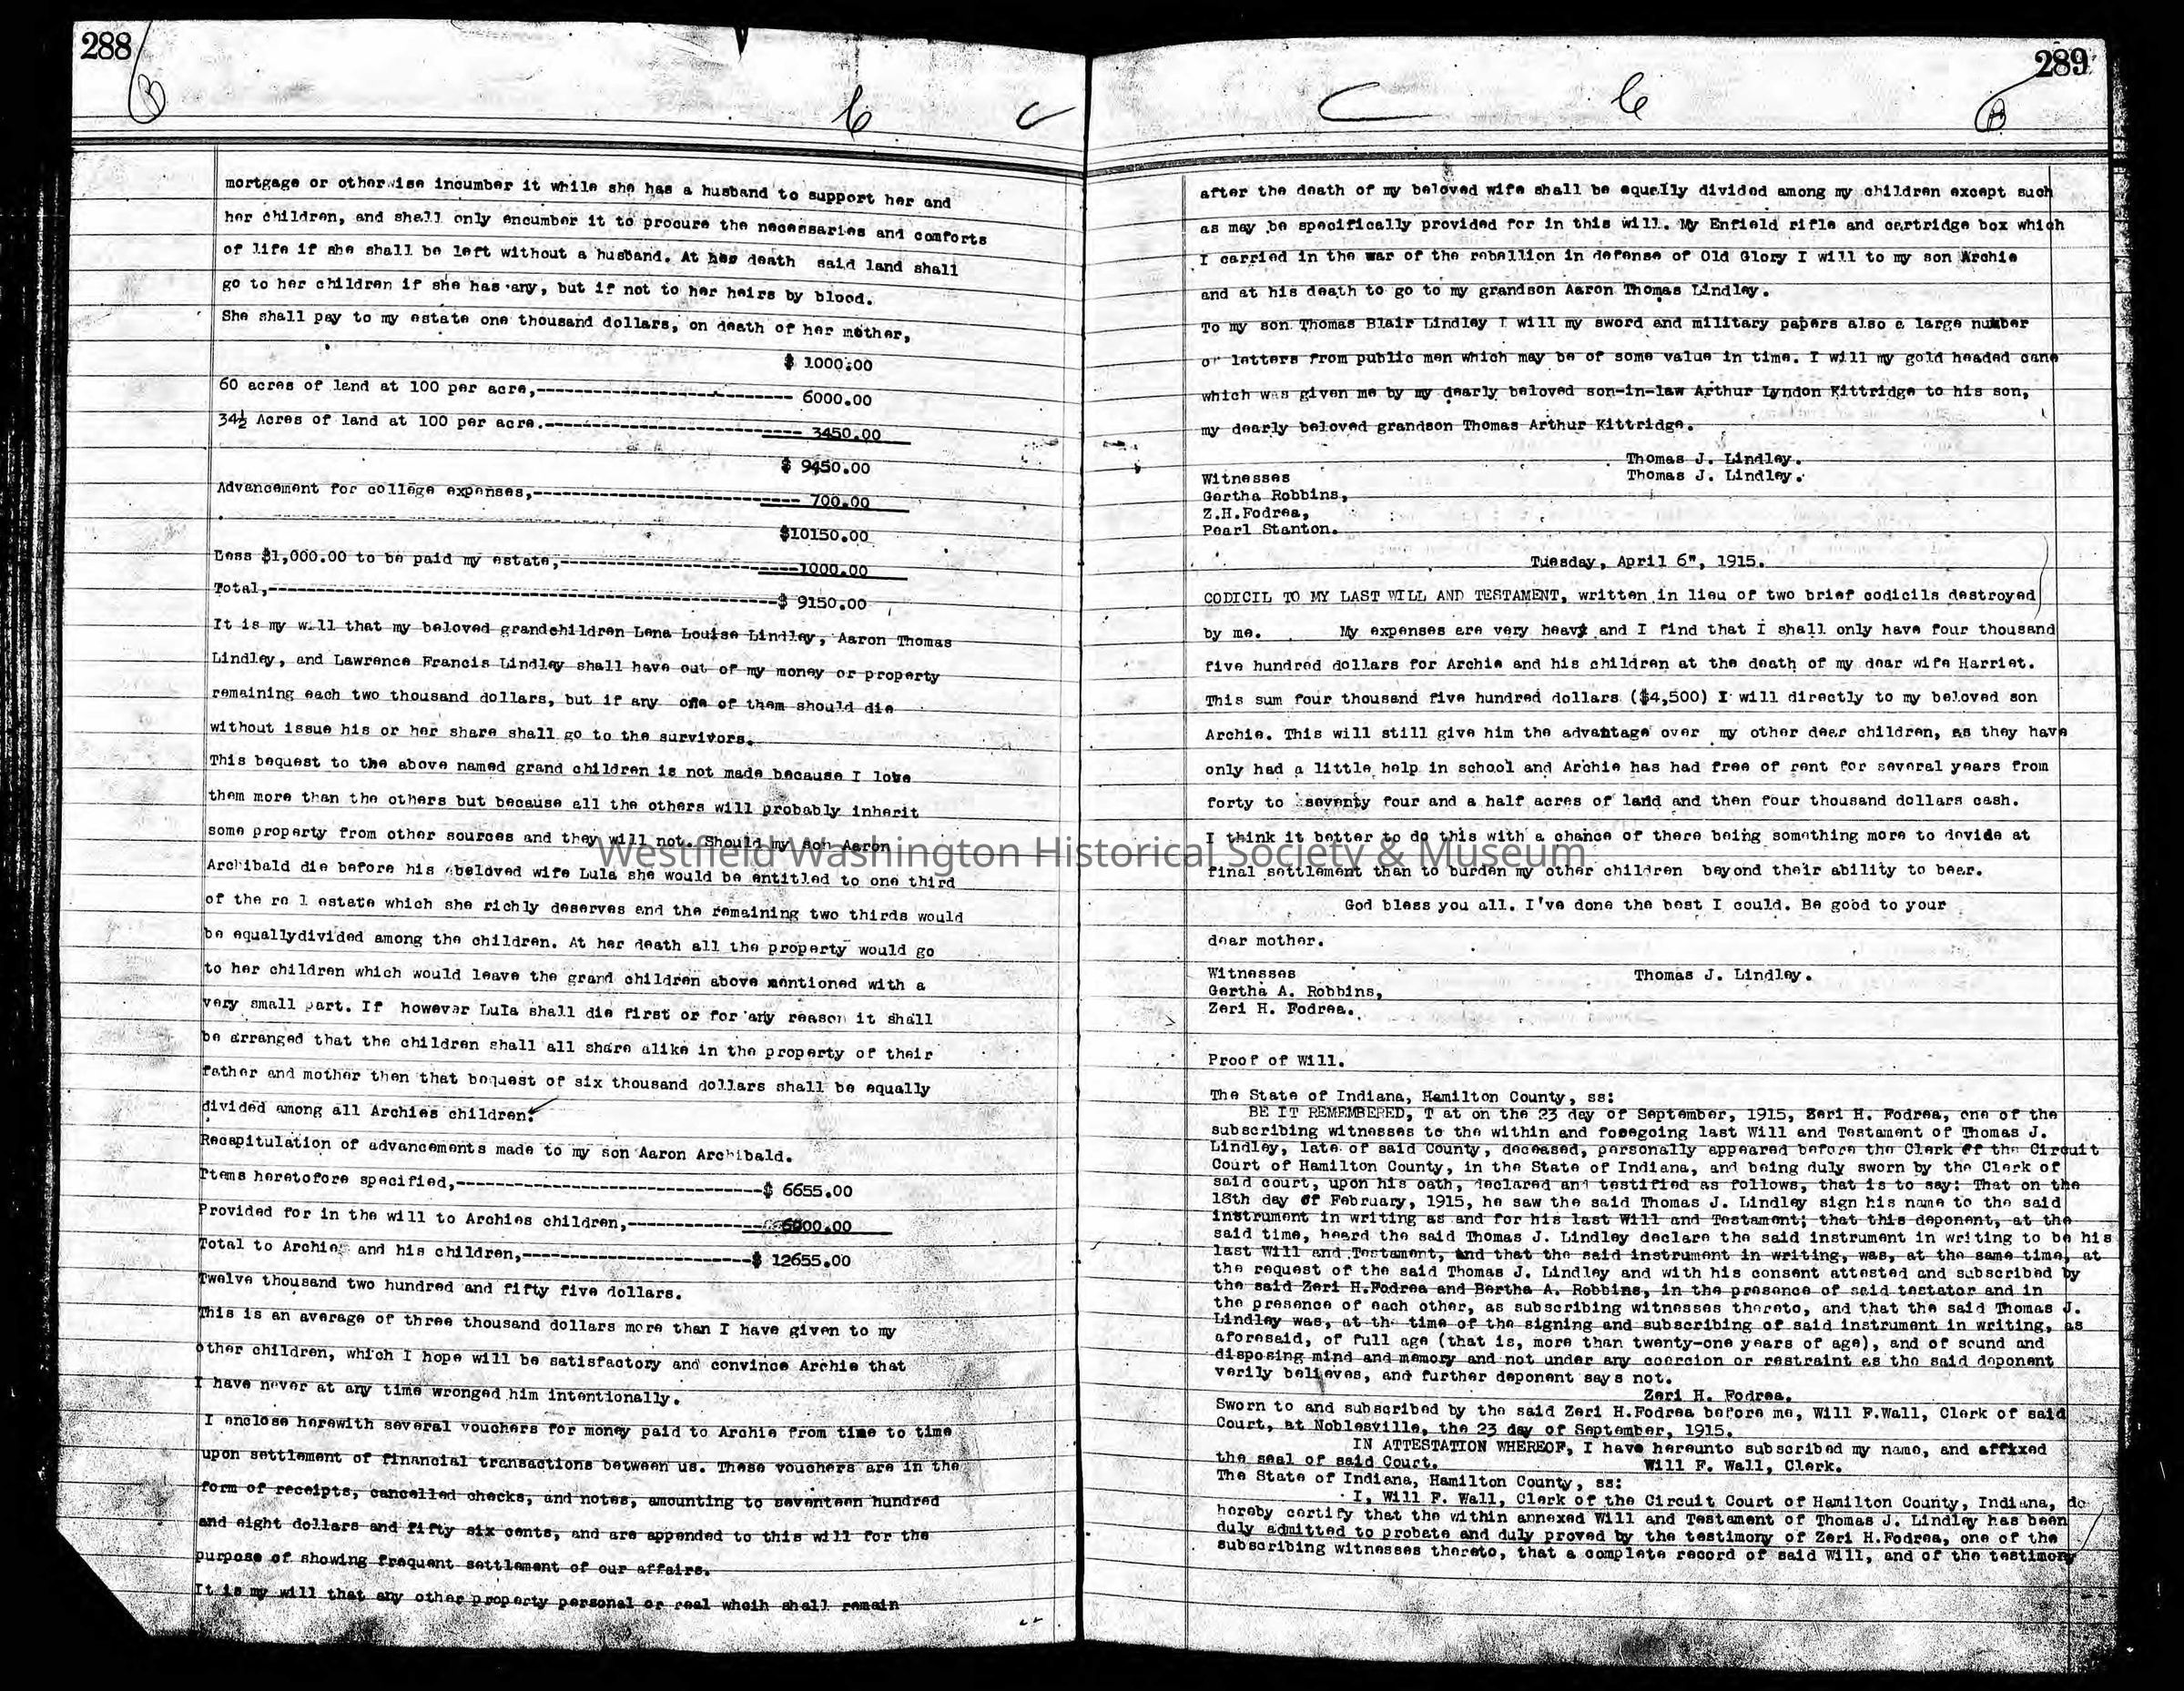 288
mortgage or otherwise incumber it while she has a husband to support her and
her children, and shall only encumber it to procure the necessaries and comforts
of life if she shall be left without a husband. At her death said land shall
go to her children if she has any, but if not to her heirs by blood.
She shall pay to my estate one thousand dollars, on death of her mother,
$ 1000.00
60 acres of land at 100 per acre,---------------------------- 6000.00
34½ Acres of land at 100 per acre.---------------------------- 3450.00
$ 9450.00
Advancement for college expenses,---------------------------- 700.00
$10150.00
Less $1,000.00 to be paid my estate,------------------------1000.00
Total,------------------------------------------------------$ 9150.00
It is my will that my beloved grandchildren Lena Louise Lindley, Aaron Thomas
Lindley, and Lawrence Francis Lindley shall have out of my money or property
remaining each two thousand dollars, but if any one of them should die
without issue his or her share shall go to the survivors.
This bequest to the above named grand children is not made because I love
them more than the others but because all the others will probably inherit
some property from other sources and they will not. Should my son Aaron
Archibald die before his beloved wife Lula she would be entitled to one third
of the re l estate which she richly deserves and the remaining two thirds would
be equallydivided among the children. At her death all the property would go
to her children which would leave the grand children above mentioned with a
very small part. If however Lula shall die first or for any reason it shall
be arranged that the children shall all share alike in the property of their
father and mother then that bequest of six thousand dollars shall be equally
divided among all Archies children.
Recapitulation of advancements made to my son Aaron Archibald.
Items heretofore specified,--------------------------------$ 6655.00
Provided for in the will to Archies children,--------------6000.00
Total to Archie and his children,------------------------$ 12655.00
Twelve thousand two hundred and fifty five dollars.
This is an average of three thousand dollars more than I have given to my
other children, which I hope will be satisfactory and convince Archie that
I have never at any time wronged him intentionally.
I enclose herewith several vouchers for money paid to Archie from time to time
upon settlement of financial transactions between us. These vouchers are in the
form of receipts, cancelled checks, and notes, amounting to seventeen hundred
and eight dollars and fifty six cents, and are appended to this will for the
purpose of showing frequent settlement of our affairs.
It is my will that any other property personal or real whcih shall remain
289
after the death of my beloved wife shall be equally divided among my children except such
as may be specifically provided for in this will. My Enfield rifle and cartridge box which
I carried in the war of the rebellion in defense of Old Glory I will to my son Archie
and at his death to go to my grandson Aaron Thomas Lindley.
To my son Thomas Blair Lindley I will my sword and military papers also a large number
of letters from public men which may be of some value in time. I will my gold headed cane
which was given me by my dearly beloved son-in-law Arthur Lyndon Kittridge to his son,
my dearly beloved grandson Thomas Arthur Kittridge.
Thomas J. Lindley.
Witnesses Thomas J. Lindley.
Gertha Robbins,
Z.H.Fodrea,
Pearl Stanton.
Tuesday, April 6", 1915.
CODICIL TO MY LAST WILL AND TESTAMENT, written in lieu of two brief codicils destroyed
by me. My expenses are very heavy and I find that I shall only have four thousand
five hundred dollars for Archie and his children at the death of my dear wife Harriet.
This sum four thousand five hundred dollars ($4,500) I will directly to my beloved son
Archie. This will still give him the advantage over my other dear children, as they have
only had a little help in school and Archie has had free of rent for several years from
forty to seventy four and a half acres of land and then four thousand dollars cash.
I think it better to do this with a chance of there being something more to devide at
final settlement than to burden my other children beyond their ability to bear.
God bless you all. I've done the best I could. Be good to your
dear mother.
Witnesses Thomas J. Lindley.
Gertha A. Robbins,
Zeri H. Fodrea.
Proof of Will.
The State of Indiana, Hamilton County, ss:
BE IT REMEMBERED, T at on the 23 day of September, 1915, Zeri H. Fodrea, one of the
subscribing witnesses to the within and foregoing last Will and Testament of Thomas J.
Lindley, late of said County, deceased, personally appeared before the Clerk of the Circuit
Court of Hamilton County, in the State of Indiana, and being duly sworn by the Clerk of
said court, upon his oath, declared and testified as follows, that is to say: That on the
18th day of February, 1915, he saw the said Thomas J. Lindley sign his name to the said
instrument in writing as and for his last Will and Testament; that this deponent, at the
said time, heard the said Thomas J. Lindley declare the said instrument in writing to be his
last Will and Testament, and that the said instrument in writing, was, at the same time, at
the request of the said Thomas J. Lindley and with his consent attested and subscribed by
the said Zeri H.Fodrea and Bertha A. Robbins, in the presence of said testator and in
the presence of each other, as subscribing witnesses thereto, and that the said Thomas J.
Lindley was, at the time of the signing and subscribing of said instrument in writing, as
aforesaid, of full age (that is, more than twenty-one years of age), and of sound and
disposing mind and memory and not under any coercion or restraint as the said deponent
verily believes, and further deponent says not.
Zeri H. Fodrea.
Sworn to and subscribed by the said Zeri H.Fodrea before me, Will F.Wall, Clerk of said
Court, at Noblesville, the 23 day of September, 1915.
IN ATTESTATION WHEREOF, I have hereunto subscribed my name, and affixed
the seal of said Court. Will F. Wall, Clerk.
The State of Indiana, Hamilton County, ss:
I, Will F. Wall, Clerk of the Circuit Court of Hamilton County, Indiana, do
hereby certify that the within annexed Will and Testament of Thomas J. Lindley has been
duly admitted to probate and duly proved by the testimony of Zeri H.Fodrea, one of the
subscribing witnesses thereto, that a complete record of said Will, and of the testimony
Westfield Washington Historical Society & Museum